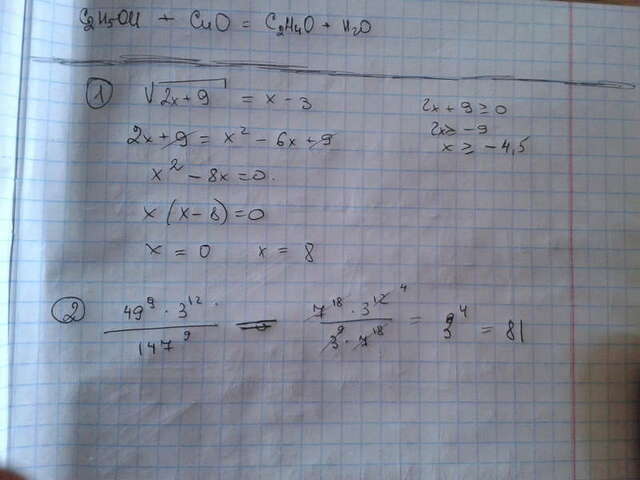 C₂H₅OH + CuO = C₂H₄O + H₂O
① √2x+9 = x-3
2x+9 ≥ 0
2x ≥ -9
x ≥ -4,5
2x+9 = x² - 6x+9
x² - 8x=0.
x(x-8)=0
x=0 x=8
② 49⁹ · 3¹² · / 147⁹ = 7¹⁸ · 3¹² ⁴ / 3⁹ · 7¹⁸ = 3⁴ = 81